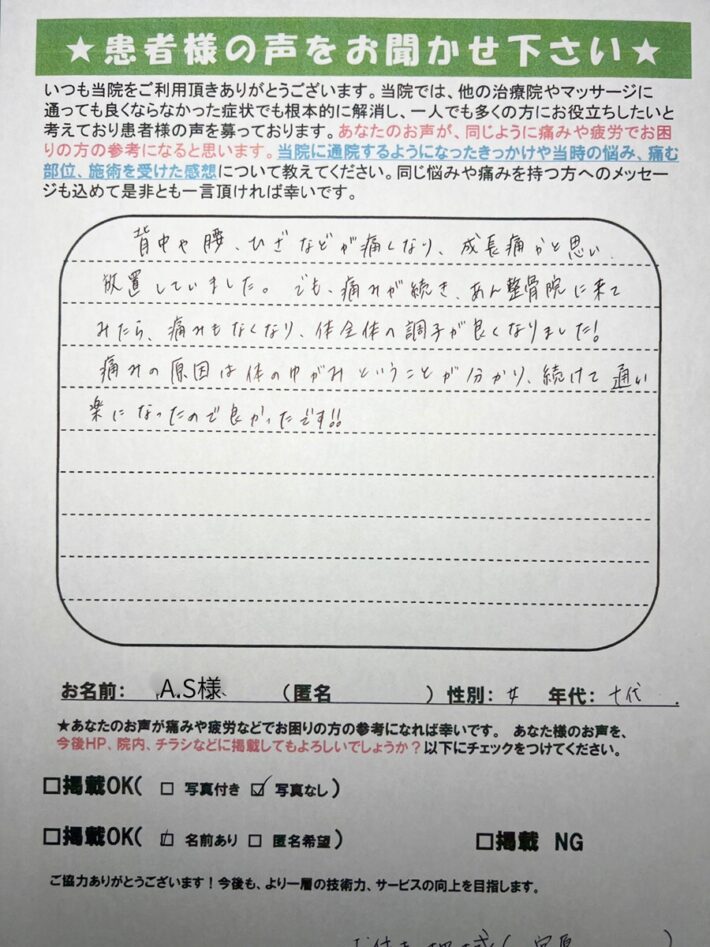 ★患者様の声をお聞かせ下さい★
いつも当院をご利用頂きありがとうございます。当院では、他の治療院やマッサージに
通っても良くならなかった症状でも根本的に解消し、一人でも多くの方にお役立ちしたいと
考えており患者様の声を募っております。あなたのお声が、同じように痛みや疲労でお困
りの方の参考になると思います。当院に通院するようになったきっかけや当時の悩み、痛む
部位、施術を受けた感想について教えてください。同じ悩みや痛みを持つ方へのメッセー
ジも込めて是非とも一言頂ければ幸いです。
背中や腰、ひざなどが痛くなり、成長痛かと思い
放置していました。でも、痛みが続き、あん整骨院に来て
みたら、痛みもなくなり、体全体の調子が良くなりました!
痛みの原因は体のゆがみということが分かり、続けて通い
楽になったので良かったです!!
お名前: A.S様 (匿名 ) 性別: 女 年代: 十代
★あなたのお声が痛みや疲労などでお困りの方の参考になれば幸いです。 あなた様のお声を、
今後HP、院内、チラシなどに掲載してもよろしいでしょうか?以下にチェックをつけてください。
□掲載OK( □ 写真付き ☑ 写真なし)
□掲載OK( ☑ 名前あり □ 匿名希望) □掲載 NG
ご協力ありがとうございます!今後も、より一層の技術力、サービスの向上を目指します。